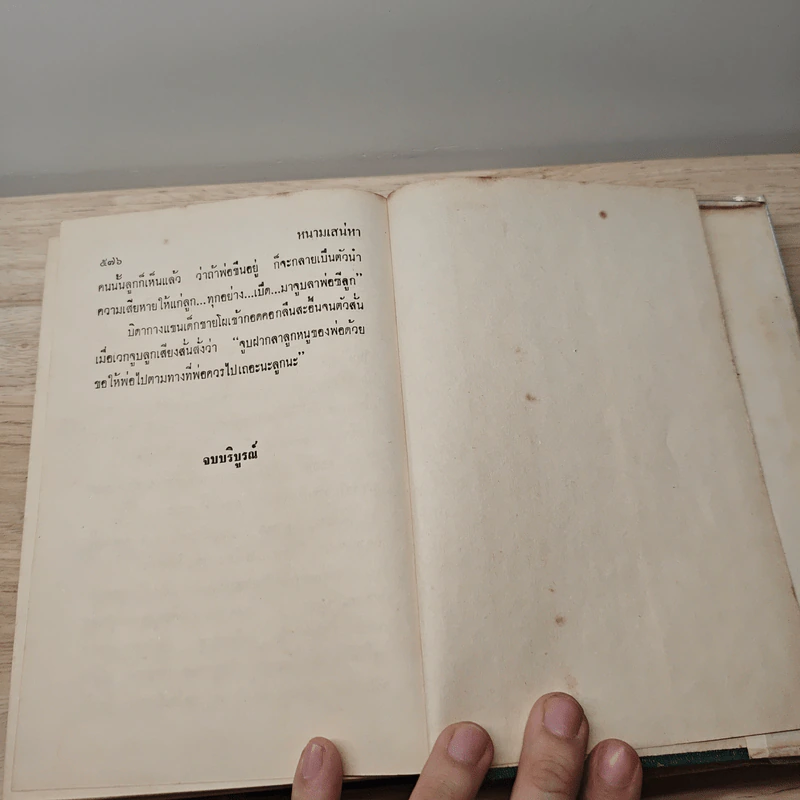 ๕๗๖
หนามเสน่หา
คนนั้นลูกก็เห็นแล้ว ว่าถ้าพ่อขืนอยู่ ก็จะกลายเป็นตัวนำ
ความเสียหายให้แก่ลูก...ทุกอย่าง...เบิ้ด...มาจูบลาพ่อซีลูก”
บิดากางแขนเด็กชายโผเข้ากอดคอกลืนสะอื้นจนตัวสั่น
เมื่อเวกจูบลูกเสียงสั่นสั่งว่า “จูบฝากลาลูกหนูของพ่อด้วย
ขอให้พ่อไปตามทางที่พ่อควรไปเถอะนะลูกนะ”
จบบริบูรณ์